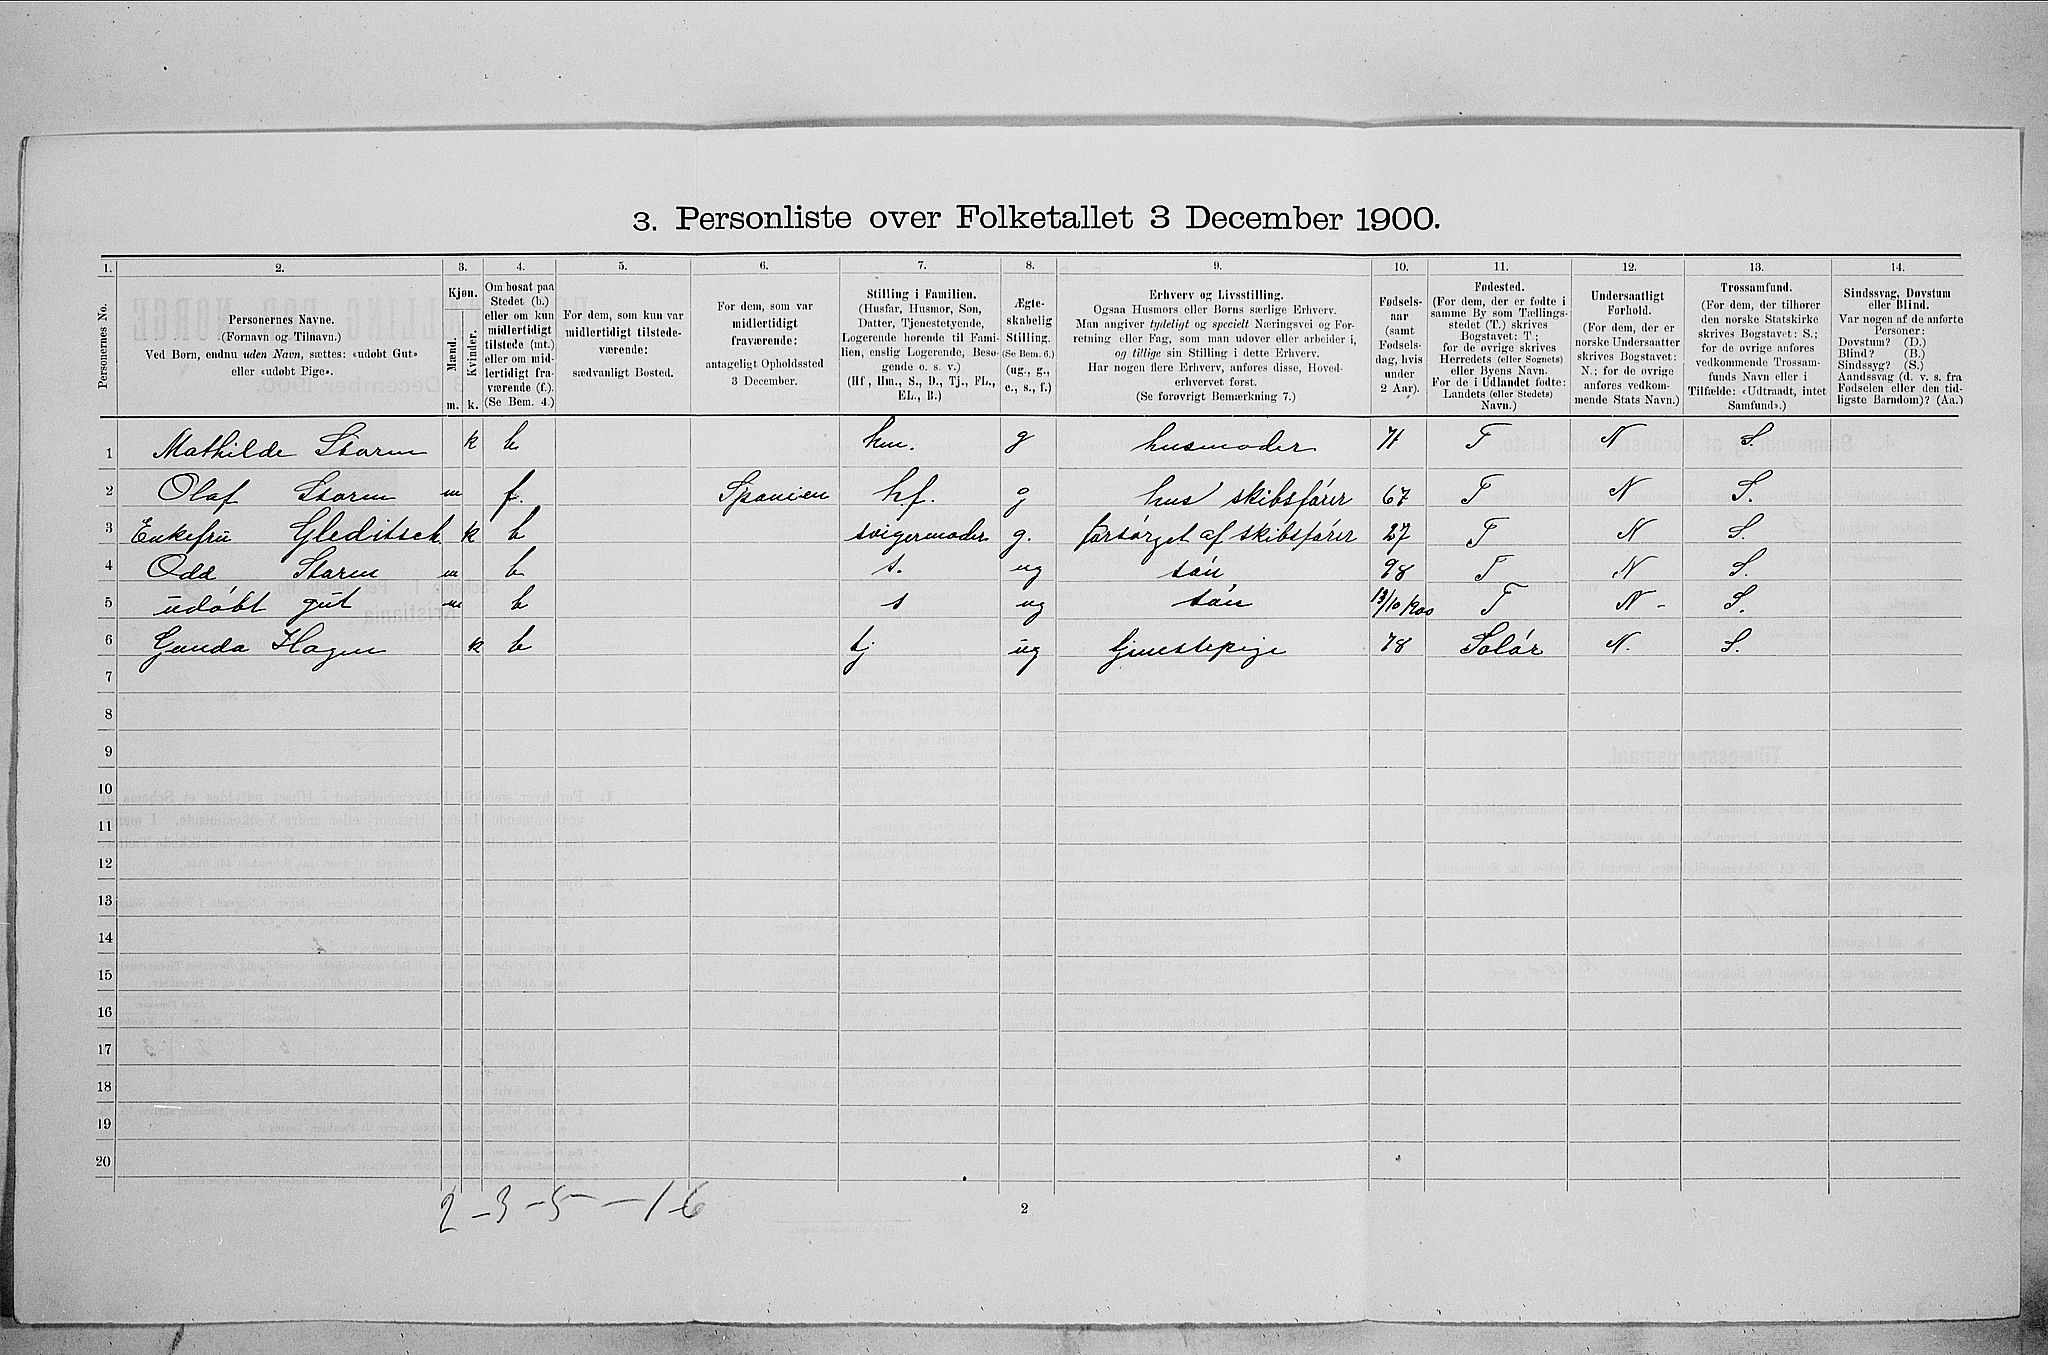 3. Personliste over Folketallet 3 December 1900.
1. 2. 3. 4. 5. 6. 7. 8. 9. 10. 11. 12. 13. 14.
Personernes No.
Personernes Navne.
(Fornavn og Tilnavn.)
Ved Børn, endnu uden Navn, sættes: «udøbt Gut»
eller «udøbt Pige».
Kjøn.
Mænd.
Kvinder.
m. k.
Om bosat paa
Stedet (b.)
eller om kun
midlertidigt
tilstede (mt.)
eller om mid-
lertidigt fra-
værende (f.).
(Se Bem. 4.)
For dem, som kun var
midlertidigt tilstede-
værende:
sædvanligt Bosted.
For dem, som var
midlertidigt
fraværende:
antageligt Opholdssted
3 December.
Stilling i Familien.
(Husfar, Husmor, Søn,
Datter, Tjenestetyende,
Logerende hørende til Fami-
lien, enslig Logerende, Besø-
gende o. s. v.)
(Hf , Hm., S., D., Tj., FL.,
EL., B.)
Ægte-
skabelig
Stilling.
(Se Bem. 6.)
(ug., g.,
e., s., f.)
Erhverv og Livsstilling.
Ogsaa Husmors eller Børns særlige Erhverv.
Man angiver tydeligt og specielt Næringsvei og For-
retning eller Fag, som man udøver eller arbeider i,
og tillige sin Stilling i dette Erhverv.
Har nogen flere Erhverv, anføres disse, Hoved-
erhvervet først.
(Se forøvrigt Bemærkning 7.)
Fødsels-
aar
(samt
Fødsels-
dag, hvis
under
2 Aar).
Fødested.
(For dem, der er fødte i
samme By som Tællings-
stedet (T.) skrives
Bogstavet: T ;
for de øvrige skrives
Herredets (eller Sognets)
eller Byens Navn.
For de i Udlandet fødte:
Landets (eller Stedets)
Navn.)
Undersaatligt
Forhold.
(For dem, der er
norske Undersaatter
skrives Bogstavet:
N.; for de øvrige
anføres vedkom-
mende Stats Navn.)
Trossamfund.
(For dem, der tilhører
den norske Statskirke
skrives Bogstavet: S.;
for de øvrige anføres
vedkommende Trossam-
funds Navn eller i
Tilfælde: «Udtraadt, intet
Samfund».)
Sindssvag, Døvstum
eller Blind.
Var nogen af de anførte
Personer:
Døvstum? (D.)
Blind? (B.)
Sindssyg? (S.)
Aandssvag (d. v. s. fra
Fødselen eller den tid-
ligste Barndom)? (Aa.)
1 Mathilde Storm k b hm. g husmoder 71 T N S.
2 Olaf Storm m f. Spanien h.f. g hus skibsfører 67 T N S.
3 Enkefru Gleditsch k b svigermoder g. forsørget af skibsfører 27 T N S.
4 Odd Storm m b s. ug søn 98 T N S.
5 udøbt gut m b s ug søn 13/10 1900 T N - S.
6 Gunda Hagen k b tj ug tjenestepige 78 Solør N. S.
7
8
9
10
11
12
13
14
15
16
17
18
19
20
2 - 3 - 5 - - 1 6
2